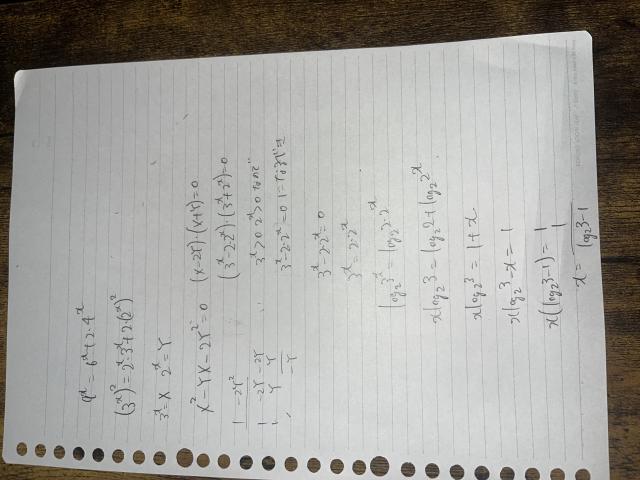 9^x = 6^x + 2・4^x
(3^x)^2 = 2^x・3^x + 2・(2^x)^2
3^x = X 2^x = Y
X^2 - YX - 2Y^2 = 0 (X-2Y)・(X+Y)=0
1 -2Y^2
1 -2Y -2Y
1 Y Y
-Y
(3^x-2・2^x)・(3^x+2^x)=0
3^x>0 2^x>0 なので
3^x-2・2^x=0
3^x-2・2^x=0
3^x=2・2^x
log_2 3^x = log_2 2・2^x
x log_2 3 = log_2 2 + log_2 2^x
x log_2 3 = 1 + x
x log_2 3 - x = 1
x(log_2 3 - 1) = 1
x = 1/(log_2 3 - 1)